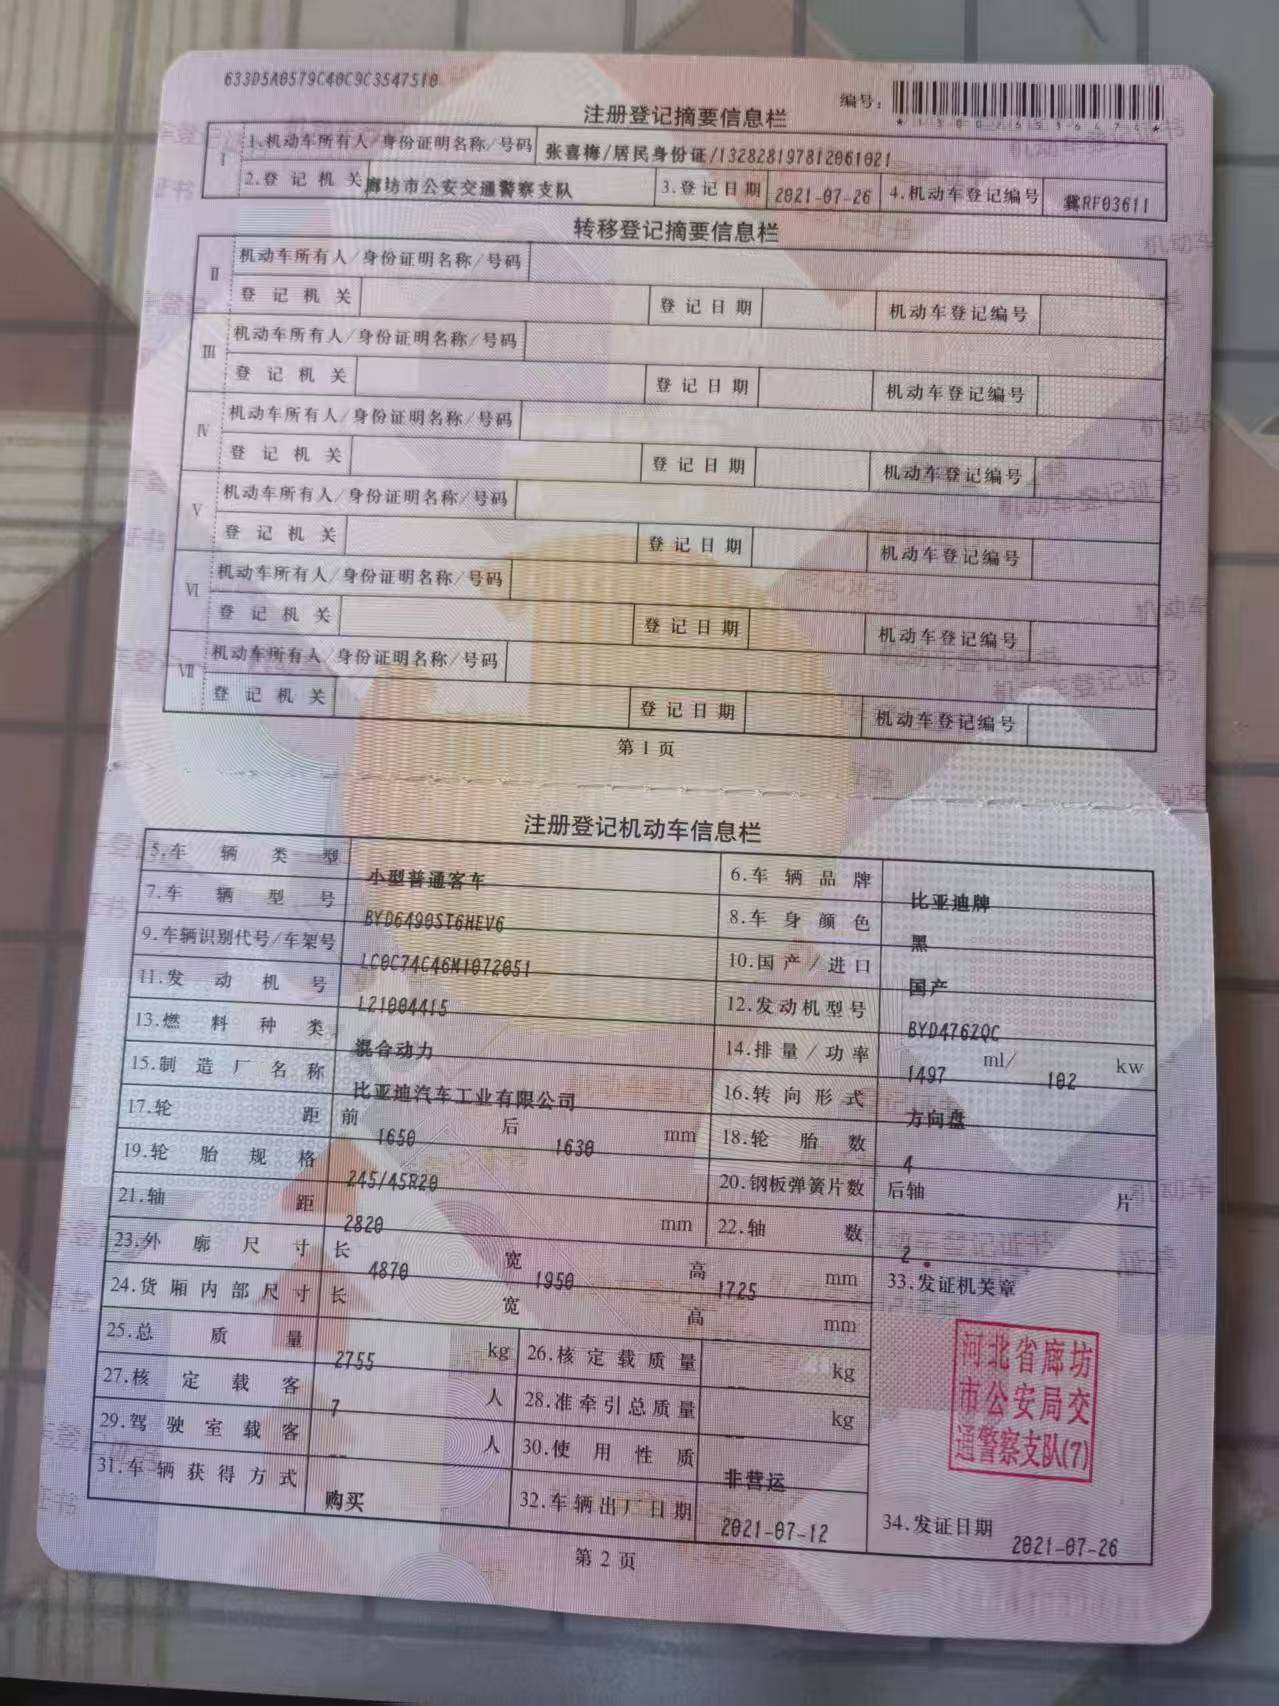 633D5A0579C40C9C3547510
编号：
注册登记摘要信息栏
I 1.机动车所有人/身份证明名称/号码 张喜梅/居民身份证/132828197812061021
2.登记机关 廊坊市公安交通警察支队 3.登记日期 2021-07-26 4.机动车登记编号 冀RF03611
转移登记摘要信息栏
II 机动车所有人/身份证明名称/号码
登记机关 登记日期 机动车登记编号
III 机动车所有人/身份证明名称/号码
登记机关 登记日期 机动车登记编号
IV 机动车所有人/身份证明名称/号码
登记机关 登记日期 机动车登记编号
V 机动车所有人/身份证明名称/号码
登记机关 登记日期 机动车登记编号
VI 机动车所有人/身份证明名称/号码
登记机关 登记日期 机动车登记编号
VII 机动车所有人/身份证明名称/号码
登记机关 登记日期 机动车登记编号
第1页
注册登记机动车信息栏
5.车辆类型 小型普通客车 6.车辆品牌 比亚迪牌
7.车辆型号 BYD6490ST6HEV6 8.车身颜色 黑
9.车辆识别代号/车架号 LC0C74C46M1072051 10.国产/进口 国产
11.发动机号 L21004415 12.发动机型号 BYD476ZQC
13.燃料种类 混合动力 14.排量/功率 1497 ml/ 102 kw
15.制造厂名称 比亚迪汽车工业有限公司 16.转向形式 方向盘
17.轮距 前 1650 后 1630 mm 18.轮胎数 4
19.轮胎规格 245/45R20 20.钢板弹簧片数 后轴 -- 片
21.轴距 2820 mm 22.轴数 2
23.外廓尺寸 长 4870 宽 1950 高 1725 mm 33.发证机关章
24.货厢内部尺寸 长 宽 高 mm
25.总质量 2755 kg 26.核定载质量 -- kg
27.核定载客 7 人 28.准牵引总质量 -- kg
29.驾驶室载客 -- 人 30.使用性质 非营运
31.车辆获得方式 购买 32.车辆出厂日期 2021-07-12 34.发证日期 2021-07-26
河北省廊坊
市公安局交
通警察支队(7)
第2页